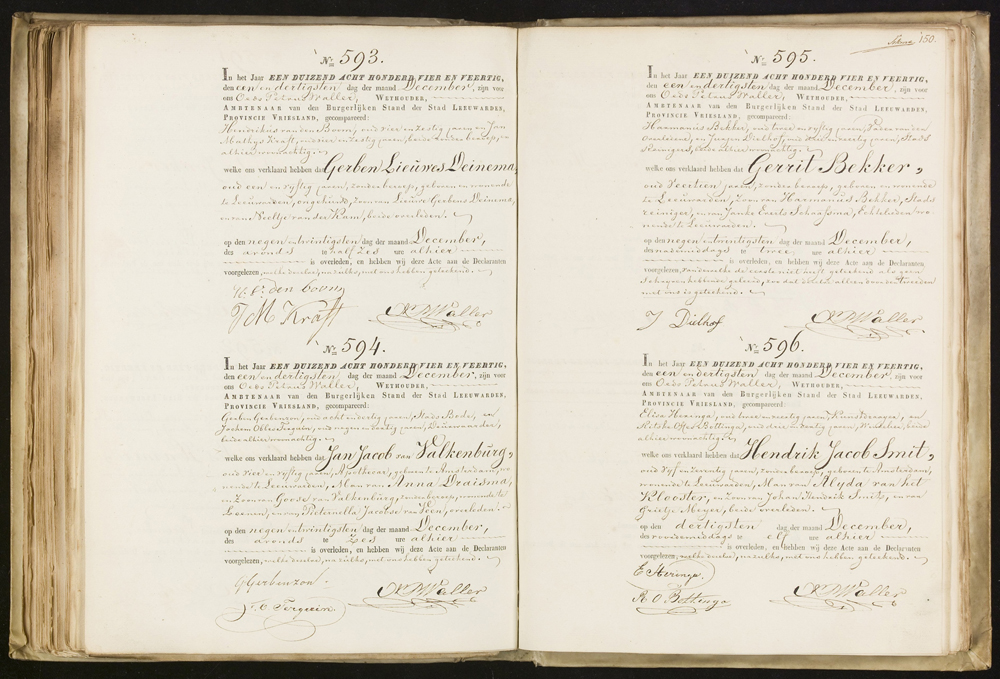 No. 593.
In het Jaar EEN DUIZEND ACHT HONDERD VIER EN VEERTIG,
den een en dertigsten dag der maand December, zijn voor
ons Oeds Petrus Waller, WETHOUDER,
AMBTENAAR van den Burgerlijken Stand der Stad LEEUWARDEN,
PROVINCIE VRIESLAND, gecompareerd:
Hendrikus van den Boorn, oud vier en zestig jaren en Jan
Mathys Kraft, oud vier en zestig jaren, beide zonder beroep,
alhier woonachtig.
welke ons verklaard hebben dat Gerben Lieuwes Deinema,
oud een en vyftig jaren, zonder beroep, geboren en wonende
te Leeuwarden, ongehuwd, zoon van Lieuwe Gerbens Deinema,
en van Neeltje van der Ram, beide overleden.
op den negen en twintigsten dag der maand December,
des avonds te half zes ure alhier
is overleden, en hebben wij deze Acte aan de Declaranten
voorgelezen, welke dezelve, na zulks, met ons hebben geteekend.
H. v. den boorn
J M Kraft
O P Waller
No. 594.
In het Jaar EEN DUIZEND ACHT HONDERD VIER EN VEERTIG,
den een en dertigsten dag der maand December, zijn voor
ons Oeds Petrus Waller, WETHOUDER,
AMBTENAAR van den Burgerlijken Stand der Stad LEEUWARDEN,
PROVINCIE VRIESLAND, gecompareerd:
Gerben Gerbenzon, oud acht en dertig jaren, Stads Bode, en
Jochem Obles, oud negen en veertig jaren,
beide alhier woonachtig
welke ons verklaard hebben dat Jan Jacob van Valkenburg,
oud vier en vyftig jaren, Apothecar, geboren te Amsterdam, wo-
nende te Leeuwarden, Man van Anna Draisma,
en Zoon van Goose van Valkenburg, zonder beroep, wonende te
Loenen, en van Pieternella Jacoba van Veen, overleden.
op den negen en twintigsten dag der maand December,
des avonds te zes ure alhier
is overleden, en hebben wij deze Acte aan de Declaranten
voorgelezen, welke dezelve, na zulks, met ons hebben geteekend.
G Gerbenzon.
O P Waller
Solina 150.
No. 595.
In het Jaar EEN DUIZEND ACHT HONDERD VIER EN VEERTIG,
den een en dertigsten dag der maand December, zijn voor
ons Oeds Petrus Waller, WETHOUDER,
AMBTENAAR van den Burgerlijken Stand der Stad LEEUWARDEN,
PROVINCIE VRIESLAND, gecompareerd:
Harmanus Bekker, oud twee en vyftig jaren, Vader van den
Overleden, en Jurgen Dielhof, oud jaren, Stads
Reinigers, beide alhier woonachtig.
welke ons verklaard hebben dat Gerrit Bekker,
oud veertien jaren, zonder beroep, geboren en wonende
te Leeuwarden, Zoon van Harmanus Bekker, Stads
reiniger, en van Janke Everts Schaafsma, Echtelieden wo-
nende te Leeuwarden.
op den negen en twintigsten dag der maand December,
des namiddags te twee ure alhier
is overleden, en hebben wij deze Acte aan de Declaranten
voorgelezen, zonder de eerste niet heeft geteekend als geen
Schryven hebbende geleerd, zoo dat dezelve alleen door den tweeden
met ons is geteekend.
J Dielhof
O P Waller
No. 596.
In het Jaar EEN DUIZEND ACHT HONDERD VIER EN VEERTIG,
den een en dertigsten dag der maand December, zijn voor
ons Oeds Petrus Waller, WETHOUDER,
AMBTENAAR van den Burgerlijken Stand der Stad LEEUWARDEN,
PROVINCIE VRIESLAND, gecompareerd:
Elisa Heringa, oud twee en veertig jaren, en
Ritske Offes Bottinga, oud drie en veertig jaren, beide
alhier woonachtig
welke ons verklaard hebben dat Hendrik Jacob Smit,
oud vyf en zeventig jaren, zonder beroep, geboren te Amsterdam,
wonende te Leeuwarden, Man van Alyda van het
Klooster, en zoon van Johan Hendrik Smith, en van
Grietje Meyer, beide overleden.
op den dertigsten dag der maand December,
des voordemiddags te elf ure alhier
is overleden, en hebben wij deze Acte aan de Declaranten
voorgelezen, welke dezelve, na zulks, met ons hebben geteekend.
E Heringa.
R O Bottinga
O P Waller